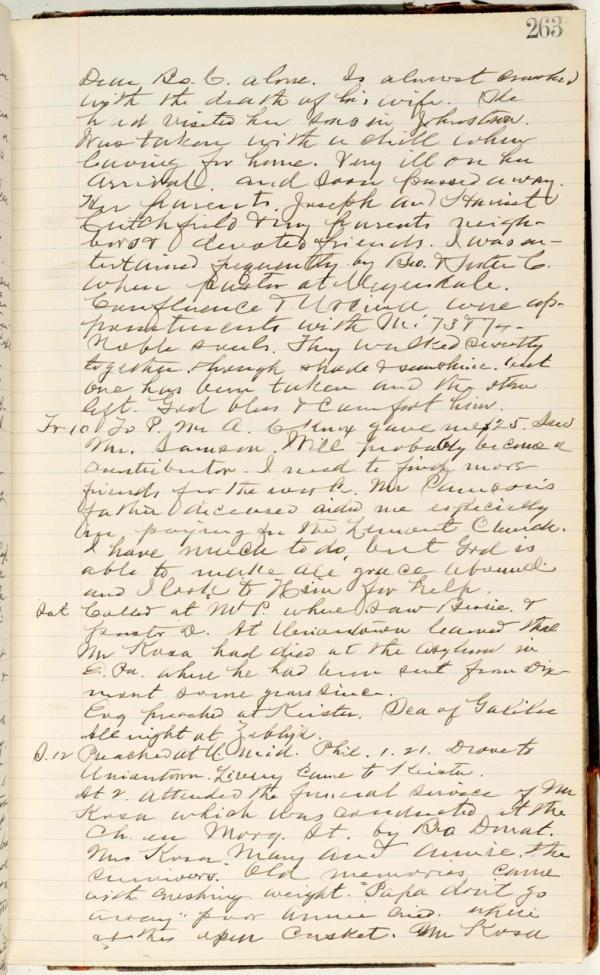 263
Dear Bro. C. alone. Is almost crushed
with the death of his wife. She
had visited her sons in Johnstown.
Was taken with a chill when
leaving for home. Very ill on her
arrival, and soon passed away.
Her parents, Joseph and Harriet
Critchfield & my parents neigh-
bors & devoted friends. I was en-
tertained frequently by Bro. & Sister C.
when pastor at Meyersdale.
Confluence & Ursina were ap-
pointments with M. '73 & 74.
Noble souls. They walked sweetly
together through shade & sunshine, but
one has been taken and the other
left. God bless & comfort him.
Fr 10 To P. Mr A. C Knox gave me $25. Saw
Mr. Will probably become a
contributor. I need to find more
friends for the work. Mr
father deceased aided me especially
in paying for the Lemont Church.
I have much to do, but God is
able to make all grace abound
and I look to Him for help.
Sat Called at Mt P. where saw Bessie &
pastor D. At Uniontown learned that
Mr Kosa had died at the asylum in
E. Pa. where he had been sent from Dix-
mont some years since.
Evg preached at Keister. Sea of Galilee
All night at
S. 12 Preached at U Mid. Phil. 1. 21. Drove to
Uniontown. Livery came to Keister.
At 2. attended the funeral service of Mr
Kosa which was conducted at the
Ch. on Morg. St. by Bro
Mrs Kosa, Mary and Annie, the
survivors. Old memories came
with crushing weight. "Papa don't go
away" poor Annie cried. where
at the open casket. Mr Kosa